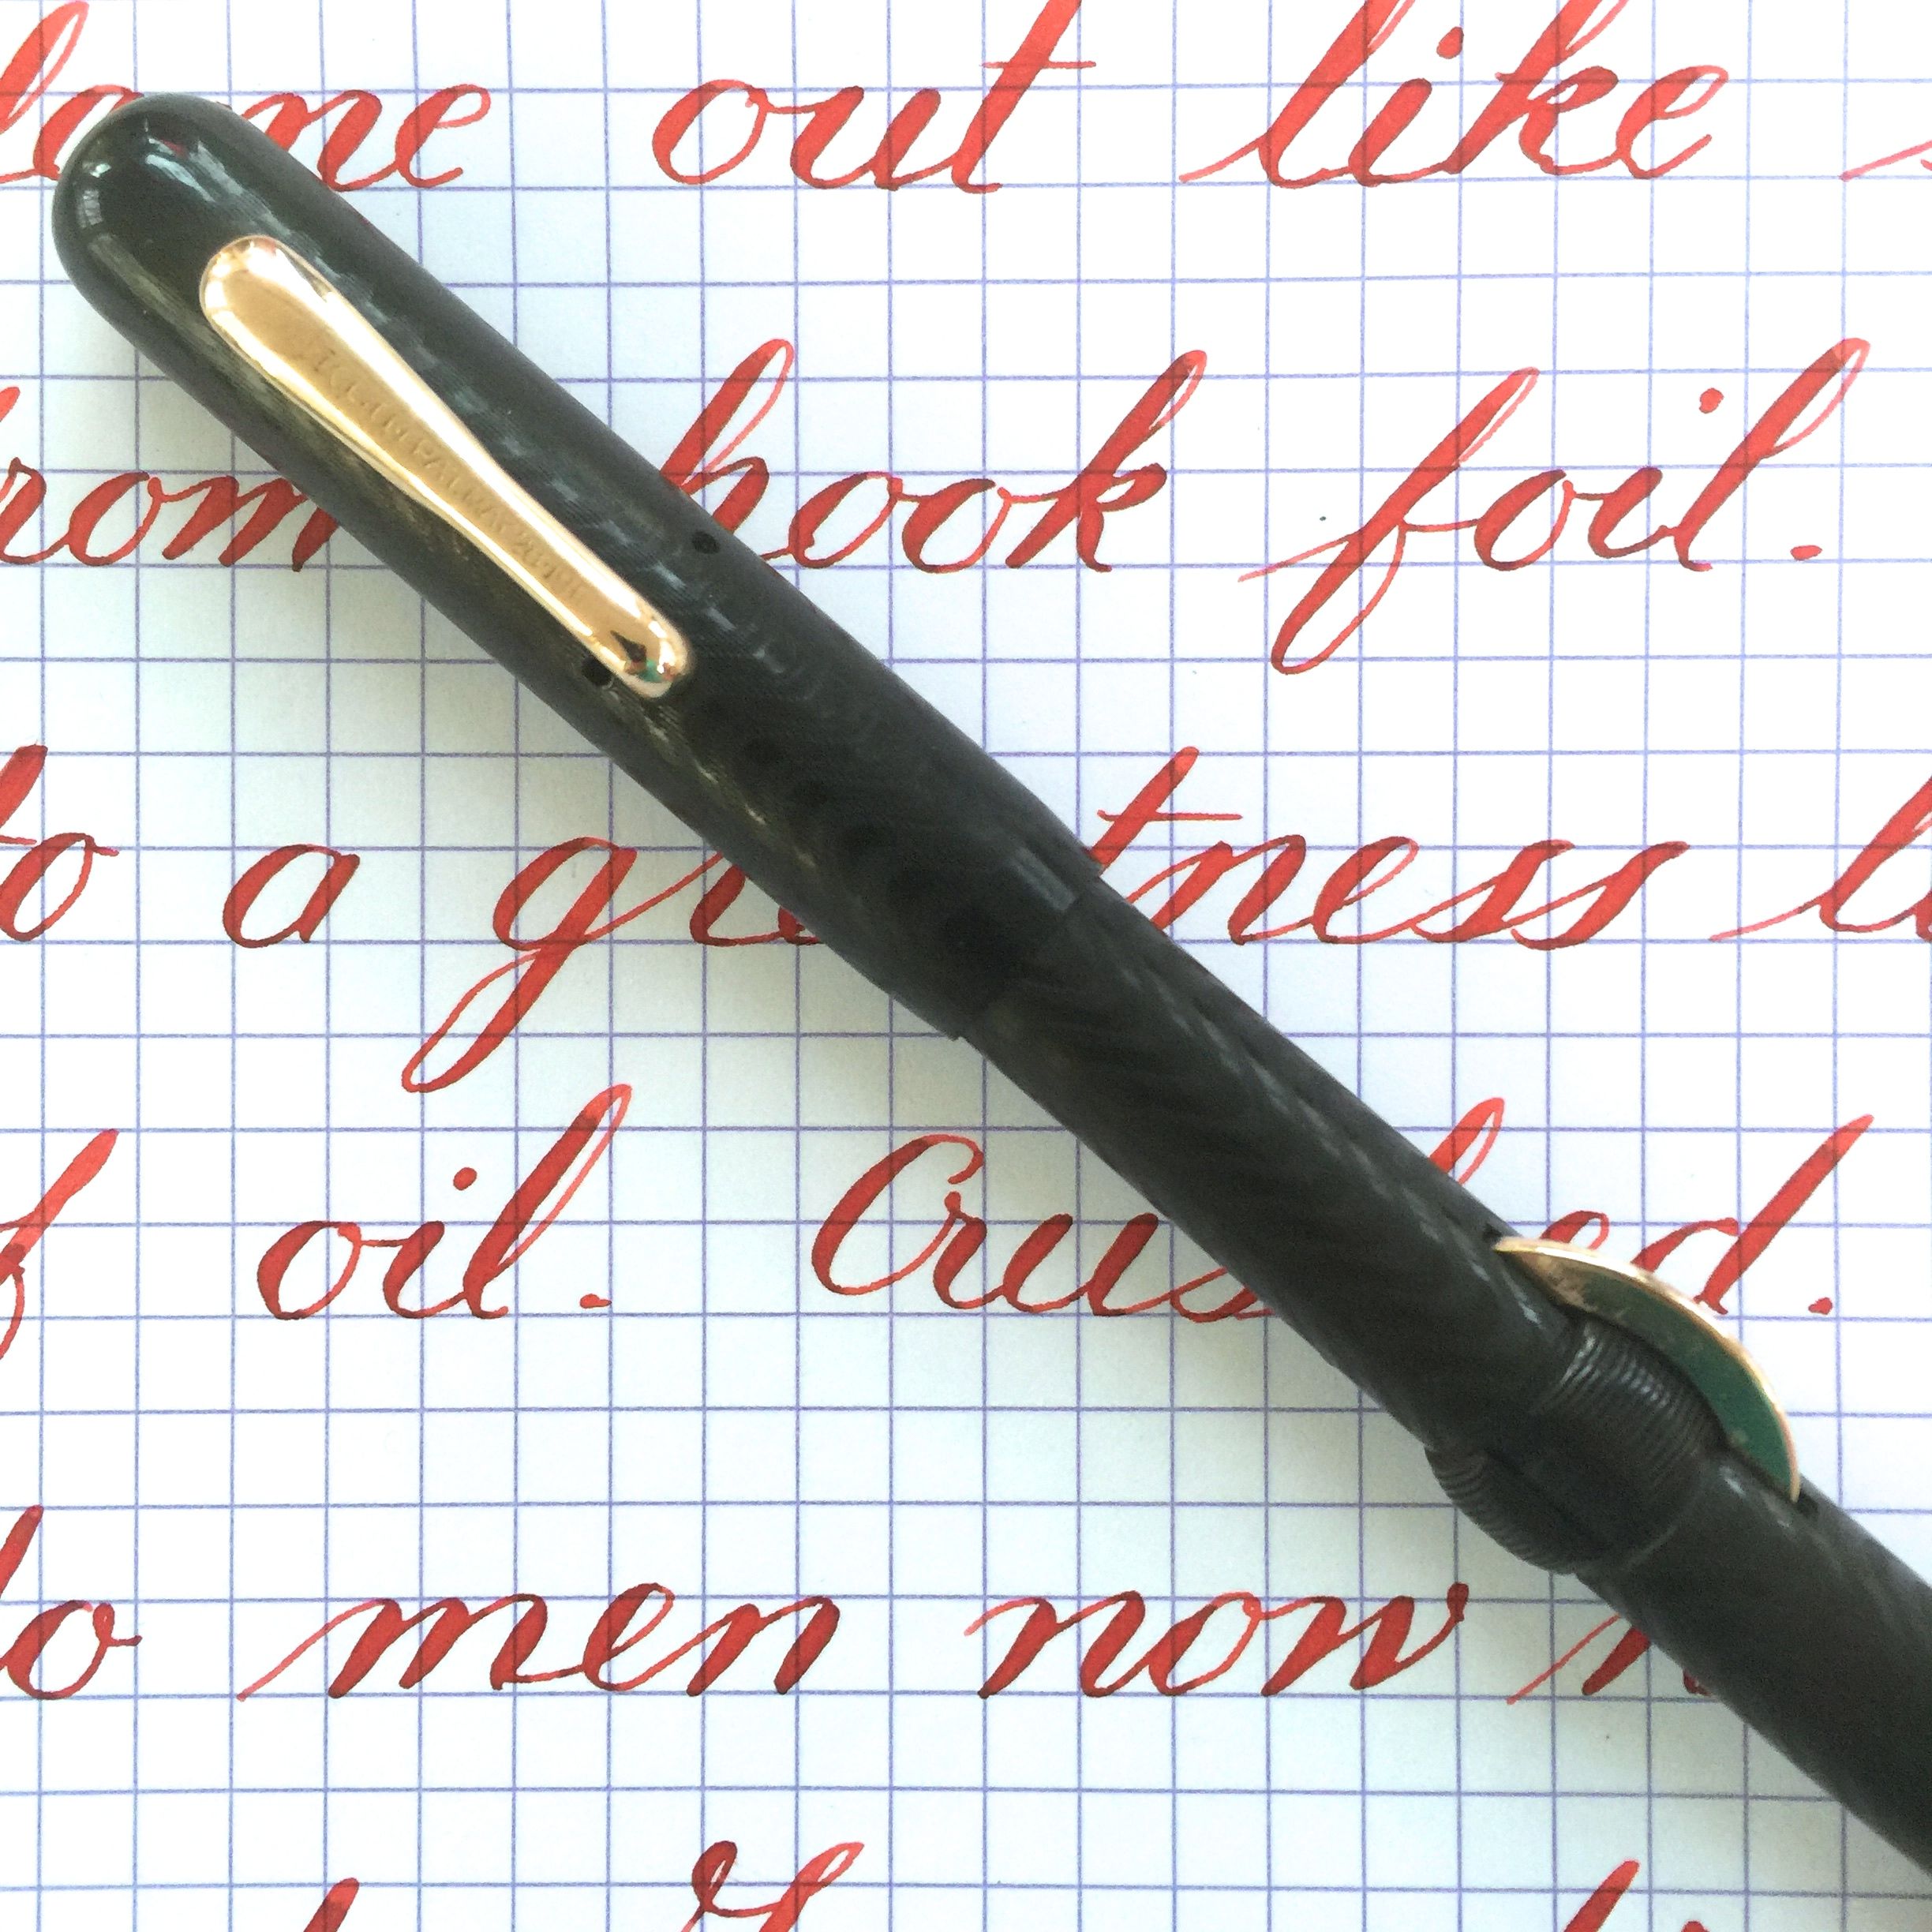 lame out like
rom hook foil.
to a gre tness
f oil. Crus ed.
do men now